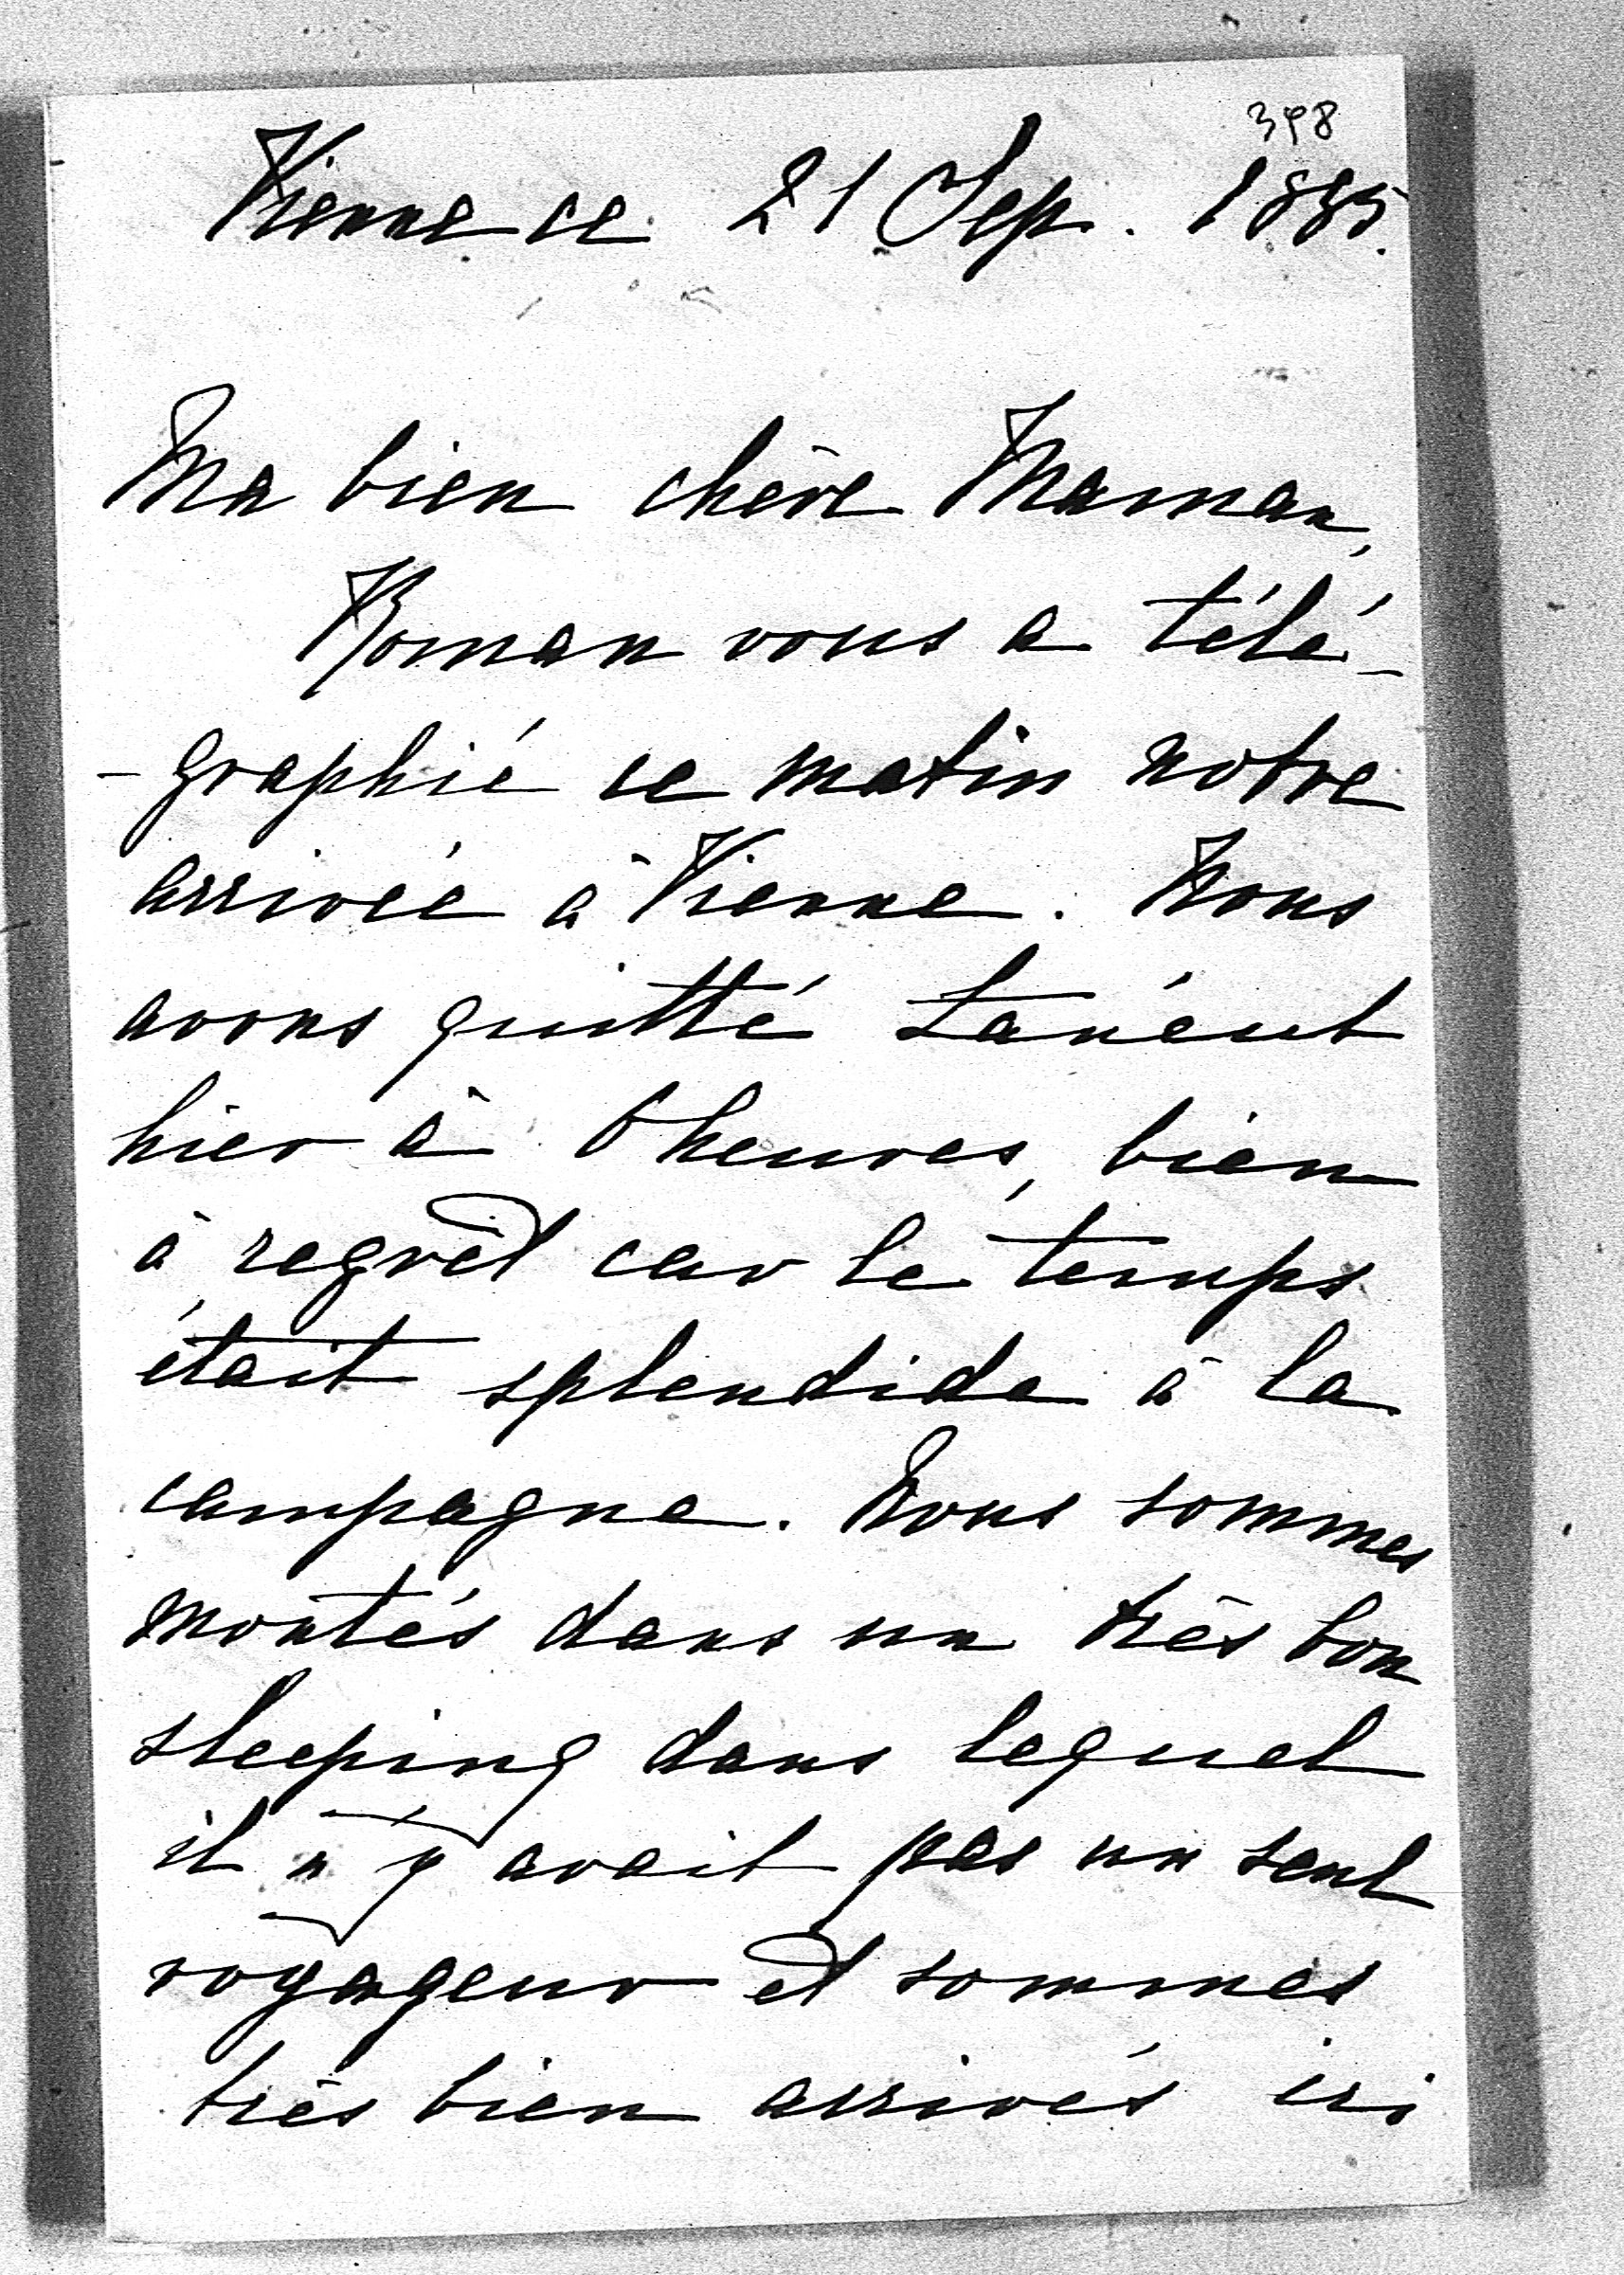 398
Vienne ce 21 Sep. 1885.
Ma bien chère Maman,
Roman vous a télé-
-graphié ce matin notre
arrivée à Vienne. Nous
avons quitté Łańcut
hier à 6 heures, bien
à regrèt car le temps
était splendide à la
campagne. Nous sommes
montés dans un très bon
sleeping dans lequel
il n'y avait pas un seul
voyageur et sommes
très bien arrivés ici